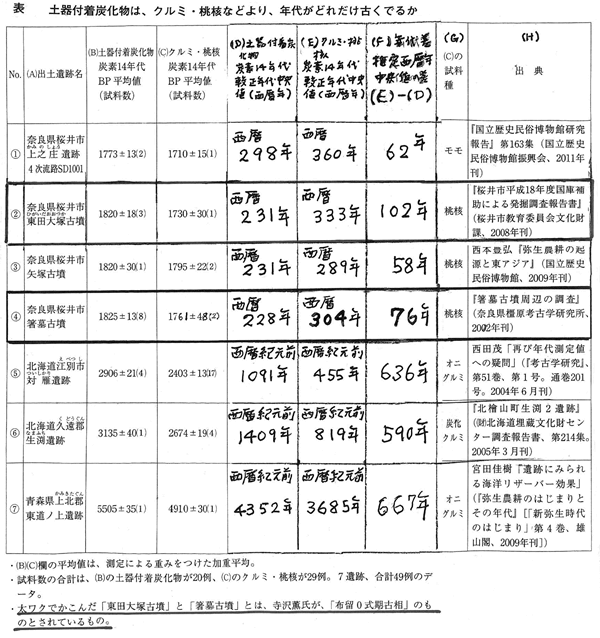 表 土器付着炭化物は、クルミ・桃核などより、年代がどれだけ古くでるか
No.
(A)出土遺跡名
(B)土器付着炭化物
炭素14年代
BP 平均値
(試料数)
(C)クルミ・桃核
炭素14年代
BP 平均値
(試料数)
(D)土器付着炭
化物
炭素14年代
較正年代中央
値(西暦年)
(E)クルミ・桃核
炭素14年代
較正年代中央
値(西暦年)
(F)
推定西暦年
中央値の差
(E)-(D)
(G)
(C)の
試料
種
(H)
出 典
①
奈良県桜井市
かみのしょう
上之庄遺跡
4次流路SD1001
1773±13(2)
1710±15(1)
西暦
298年
西暦
360年
62年
モモ
『国立歴史民俗博物館研究
報告』第163集(国立歴史
民俗博物館振興会、2011年
刊)
②
奈良県桜井市
ひがいだおおつか
東田大塚古墳
1820±18(3)
1730±30(1)
西暦
231年
西暦
333年
102年
桃核
『桜井市平成18年度国庫補
助による発掘調査報告書』
(桜井市教育委員会文化財
課、2008年刊)
③
奈良県桜井市
矢塚古墳
1820±30(1)
1795±22(2)
西暦
231年
西暦
289年
58年
桃核
西本豊弘『弥生農耕の起
源と東アジア』(国立歴史
民俗博物館、2009年刊)
④
奈良県桜井市
箸墓古墳
1825±13(8)
1761±48(2)
西暦
228年
西暦
304年
76年
桃核
『箸墓古墳周辺の調査』
(奈良県橿原考古学研究所、
2002年刊)
⑤
えべつし
北海道江別市
ついしかり
対雁遺跡
2906±21(4)
2403±13(17)
西暦紀元前
1091年
西暦紀元前
455年
636年
オニ
グルミ
西田茂「再び年代測定値
への疑問」(『考古学研究』、
第51巻、第1号。通巻201
号。2004年6月刊)
⑥
くどうぐん
北海道久遠郡
なまふち
生渕遺跡
3135±40(1)
2674±19(4)
西暦紀元前
1409年
西暦紀元前
819年
590年
炭化
クルミ
『北檜山町生渕2遺跡』
(㈶北海道埋蔵文化財セン
ター調査報告書、第214集。
2005年3月刊)
⑦
かみきたぐん
青森県上北郡
東道ノ上遺跡
5505±35(1)
4910±30(1)
西暦紀元前
4352年
西暦紀元前
3685年
667年
オニ
グルミ
宮田佳樹『遺跡にみられ
る海洋リザーバー効果』
(『弥生農耕のはじまりと
その年代』[『新弥生時代
のはじまり」第4巻、雄
山閣、2009年刊])
・(B)(C)欄の平均値は、測定による重みをつけた加重平均。
・試料数の合計は、(B)の土器付着炭化物が20例、(C)のクルミ・桃核が29例。7遺跡、合計49例のデ
ータ。
・太ワクでかこんだ「東田大塚古墳」と「箸墓古墳」とは、寺沢薫氏が、「布留0式期古相」のも
のとされているもの。